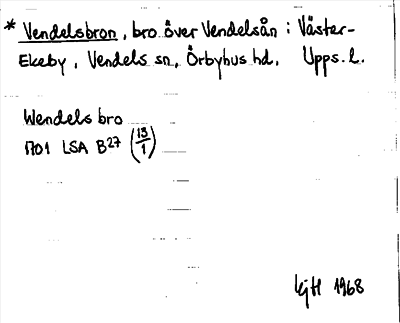 * Vendelsbron, bro över Vendelsån i Väster-
Ekeby, Vendels sn, Örbyhus hd, Upps. l.
Wendels bro
1701 LSA B27 (13/1)
KjH 1968